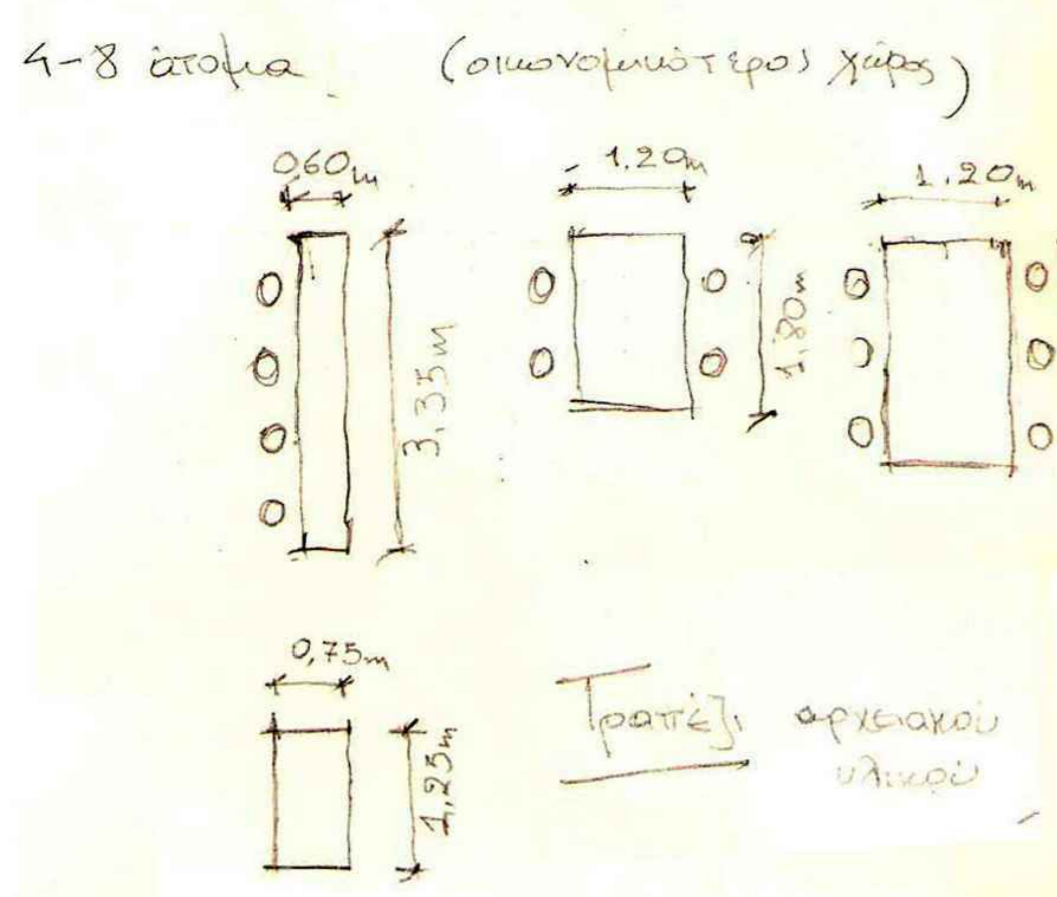 4-8 άτομα (οικονομικότερος χώρος)
0,60m
1.20m
1.20m
3,35m
1,80m
0,75m
1,25m
Τραπέζι αρχειακού
υλικού